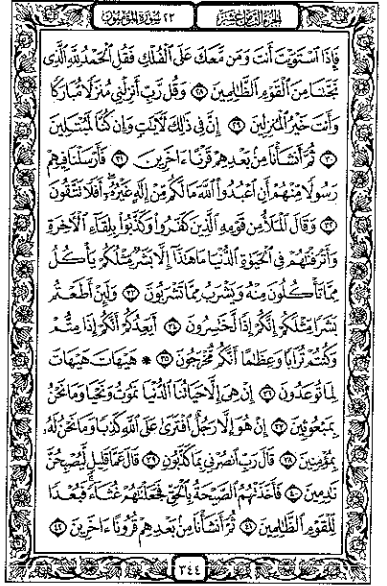 الجزء الثامن عشر ٢٣ سورة المؤمنون
فَإِذَا ٱسْتَوَيْتَ أَنتَ وَمَن مَّعَكَ عَلَى ٱلْفُلْكِ فَقُلِ ٱلْحَمْدُ لِلَّهِ ٱلَّذِى
نَجَّىٰنَا مِنَ ٱلْقَوْمِ ٱلظَّٰلِمِينَ ٢٨ وَقُل رَّبِّ أَنزِلْنِى مُنزَلًا مُّبَارَكًا
وَأَنتَ خَيْرُ ٱلْمُنزِلِينَ ٢٩ إِنَّ فِى ذَٰلِكَ لَءَايَٰتٍ وَإِن كُنَّا لَمُبْتَلِينَ
٣٠ ثُمَّ أَنشَأْنَا مِنۢ بَعْدِهِمْ قَرْنًا ءَاخَرِينَ ٣١ فَأَرْسَلْنَا فِيهِمْ
رَسُولًا مِّنْهُمْ أَنِ ٱعْبُدُوا۟ ٱللَّهَ مَا لَكُم مِّنْ إِلَٰهٍ غَيْرُهُۥٓ أَفَلَا تَتَّقُونَ
٣٢ وَقَالَ ٱلْمَلَأُ مِن قَوْمِهِ ٱلَّذِينَ كَفَرُوا۟ وَكَذَّبُوا۟ بِلِقَآءِ ٱلْءَاخِرَةِ
وَأَتْرَفْنَٰهُمْ فِى ٱلْحَيَوٰةِ ٱلدُّنْيَا مَا هَٰذَآ إِلَّا بَشَرٌ مِّثْلُكُمْ يَأْكُلُ
مِمَّا تَأْكُلُونَ مِنْهُ وَيَشْرَبُ مِمَّا تَشْرَبُونَ ٣٣ وَلَئِنْ أَطَعْتُم
بَشَرًا مِّثْلَكُمْ إِنَّكُمْ إِذًا لَّخَٰسِرُونَ ٣٤ أَيَعِدُكُمْ أَنَّكُمْ إِذَا مِتُّمْ
وَكُنتُمْ تُرَابًا وَعِظَٰمًا أَنَّكُم مُّخْرَجُونَ ٣٥ ۞ هَيْهَاتَ هَيْهَاتَ
لِمَا تُوعَدُونَ ٣٦ إِنْ هِىَ إِلَّا حَيَاتُنَا ٱلدُّنْيَا نَمُوتُ وَنَحْيَا وَمَا نَحْنُ
بِمَبْعُوثِينَ ٣٧ إِنْ هُوَ إِلَّا رَجُلٌ ٱفْتَرَىٰ عَلَى ٱللَّهِ كَذِبًا وَمَا نَحْنُ لَهُۥ
بِمُؤْمِنِينَ ٣٨ قَالَ رَبِّ ٱنصُرْنِى بِمَا كَذَّبُونِ ٣٩ قَالَ عَمَّا قَلِيلٍ لَّيُصْبِحُنَّ
نَٰدِمِينَ ٤٠ فَأَخَذَتْهُمُ ٱلصَّيْحَةُ بِٱلْحَقِّ فَجَعَلْنَٰهُمْ غُثَآءً فَبُعْدًا
لِّلْقَوْمِ ٱلظَّٰلِمِينَ ٤١ ثُمَّ أَنشَأْنَا مِنۢ بَعْدِهِمْ قُرُونًا ءَاخَرِينَ ٤٢
٣٤٤